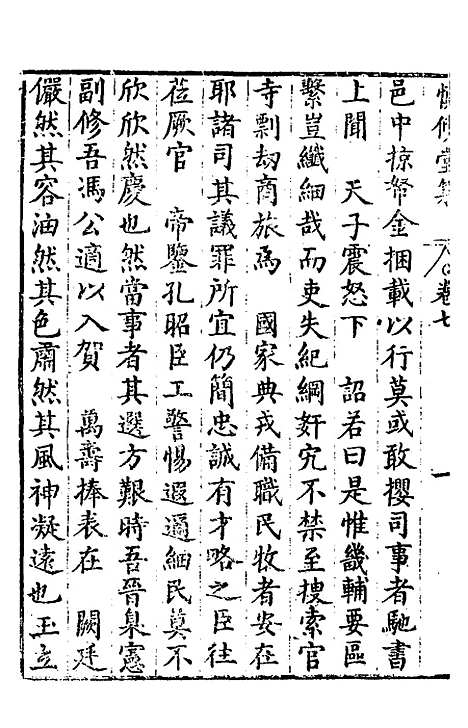 慎修堂集 卷七 一
邑中掠帑金捆載以行莫或敢攖司事者馳書
上聞　天子震怒下　詔若曰是惟畿輔要區
繫豈纖細哉而吏失紀綱奸宄不禁至搜索官
寺剽劫商旅爲　國家典戎備職民牧者安在
耶諸司其議罪所宜仍簡忠誠有才略之臣往
莅厥官　帝鑒孔昭臣工警惕遐邇緬民莫不
欣欣然慶也然當事者其選方艱時吾晉臬憲
副修吾馮公適以入賀　萬壽捧表在　闕廷
儼然其容油然其色肅然其風神凝遠也玉立